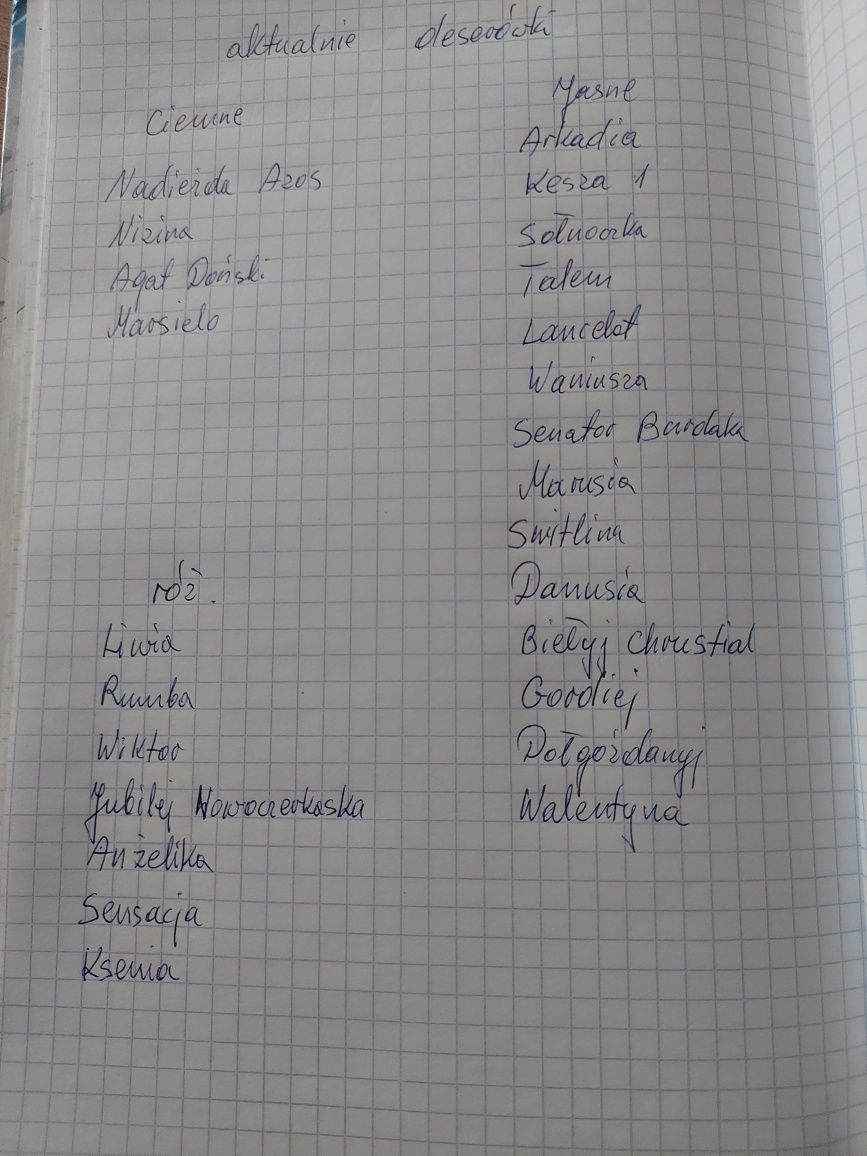 aktualnie deserówki
Ciemne
Nadieżda Azos
Nizina
Agat Doński
Marsielo
róż.
Liwia
Rumba
Wiktor
Jubilej Nowoczerkaska
Anżelika
Sensacja
Ksenia
Jasne
Arkadia
Kesza 1
Sołnoczka
Talem
Lancelot
Waniusza
Senator Burdaka
Marusia
Switlina
Danusia
Biełyj Chrustial
Gordiej
Dołgożdanyj
Walentyna